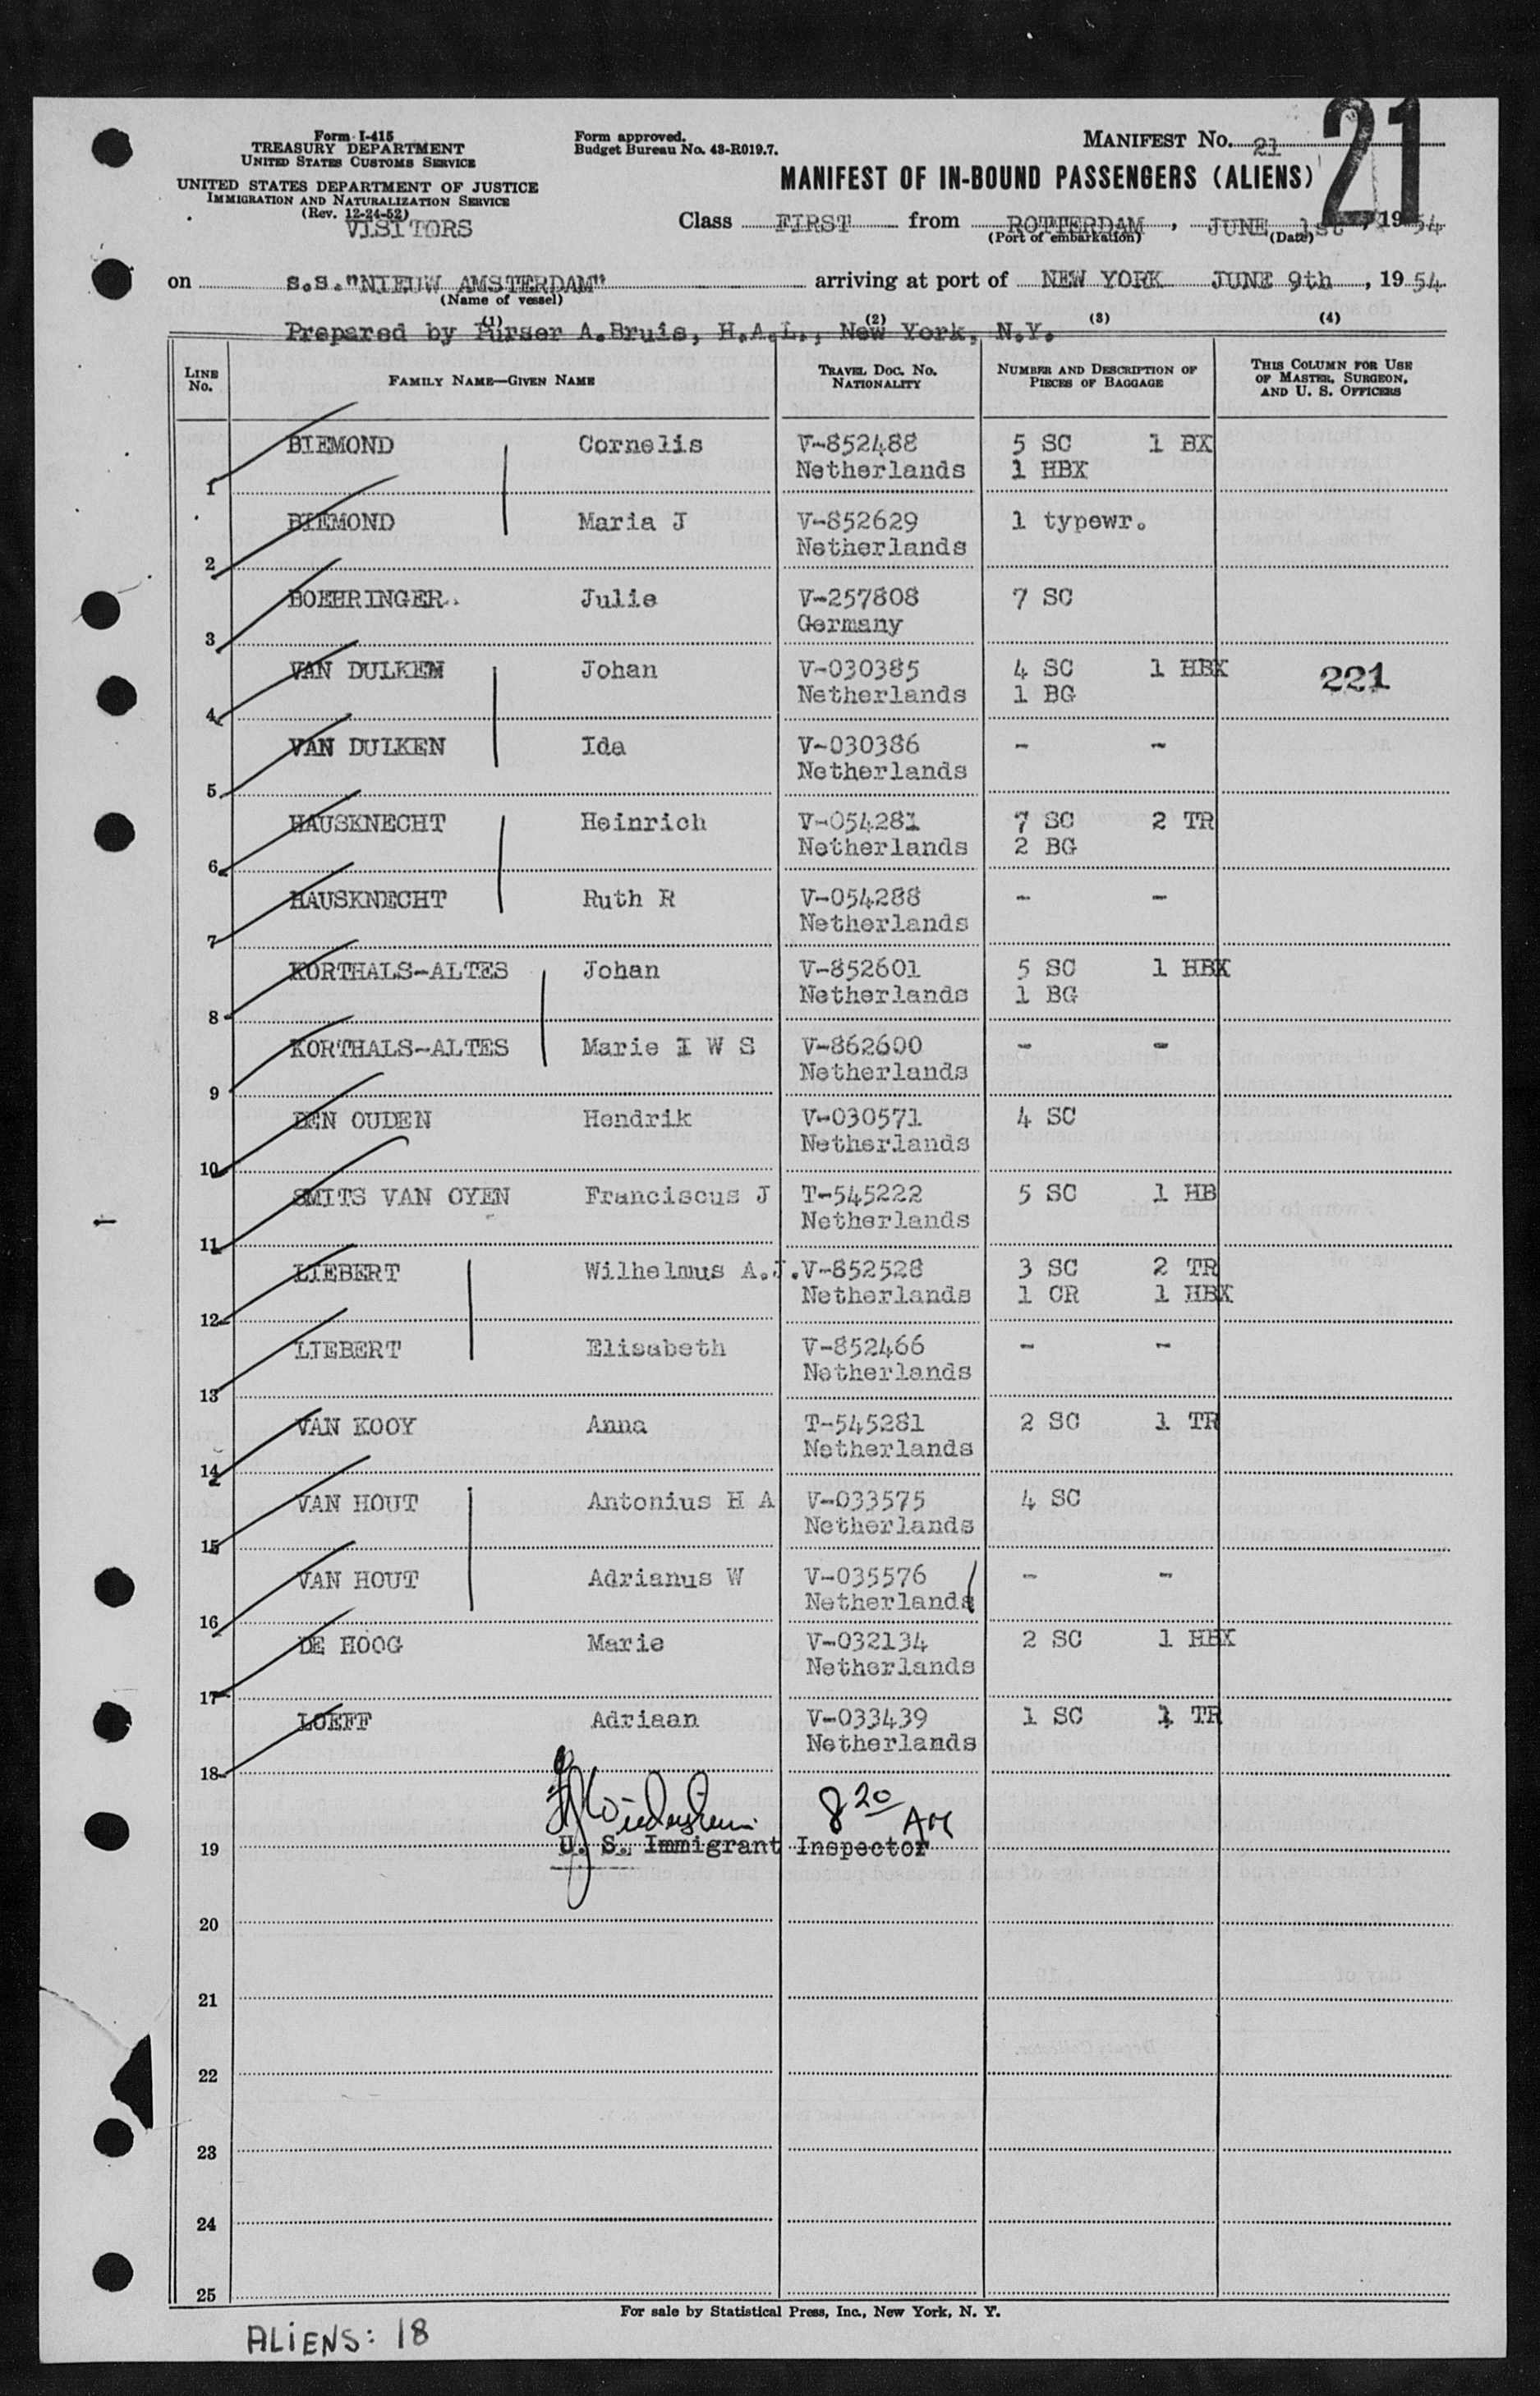 Form I-415
TREASURY DEPARTMENT
UNITED STATES CUSTOMS SERVICE
UNITED STATES DEPARTMENT OF JUSTICE
IMMIGRATION AND NATURALIZATION SERVICE
(Rev. 12-24-52)
VISITORS
Form approved.
Budget Bureau No. 43-R019.7.
MANIFEST No. 21
21
MANIFEST OF IN-BOUND PASSENGERS (ALIENS)
Class FIRST from ROTTERDAM, JUNE 1st, 1954
(Port of embarkation) (Date)
on s.s."NIEUW AMSTERDAM" arriving at port of NEW YORK JUNE 9th, 1954
(Name of vessel)
(1) (2) (3) (4)
Prepared by Purser A.Bruis, H.A.L., New York, N.Y.
LINE No. FAMILY NAME—GIVEN NAME TRAVEL DOC. NO. NATIONALITY NUMBER AND DESCRIPTION OF PIECES OF BAGGAGE THIS COLUMN FOR USE OF MASTER, SURGEON, AND U. S. OFFICERS
BIEMOND Cornelis V-852488 5 SC 1 BX
Netherlands 1 HBX
1
BIEMOND Maria J V-852629 1 typewr.
Netherlands
2
BOEHRINGER. Julie V-257808 7 SC
Germany
3
VAN DULKEN Johan V-030385 4 SC 1 HBX 221
Netherlands 1 BG
4
VAN DULKEN Ida V-030386 - -
Netherlands
5
HAUSKNECHT Heinrich V-054281 7 SC 2 TR
Netherlands 2 BG
6
HAUSKNECHT Ruth R V-054288 - -
Netherlands
7
KORTHALS-ALTES Johan V-852601 5 SC 1 HBX
Netherlands 1 BG
8
KORTHALS-ALTES Marie I W S V-862600 - -
Netherlands
9
DEN OUDEN Hendrik V-030571 4 SC
Netherlands
10
SMITS VAN OYEN Franciscus J T-545222 5 SC 1 HB
Netherlands
11
LIEBERT Wilhelmus A.J. V-852528 3 SC 2 TR
Netherlands 1 CR 1 HBX
12
LIEBERT Elisabeth V-852466 - -
Netherlands
13
VAN KOOY Anna T-545281 2 SC 1 TR
Netherlands
14
VAN HOUT Antonius H A V-033575 4 SC
Netherlands
15
VAN HOUT Adrianus W V-035576 - -
Netherlands
16
DE HOOG Marie V-032134 2 SC 1 HBX
Netherlands
17
LOEFF Adriaan V-033439 1 SC 1 TR
Netherlands
18
8 20 AM
19 U. S. Immigrant Inspector
20
21
22
23
24
25
For sale by Statistical Press, Inc., New York, N. Y.
ALIENS: 18